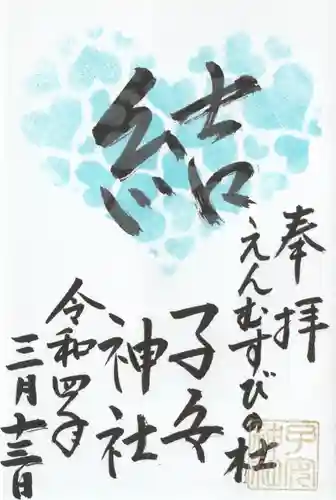 奉拝
えんむすびの杜
結
子安
神社
令和四年
三月十三日